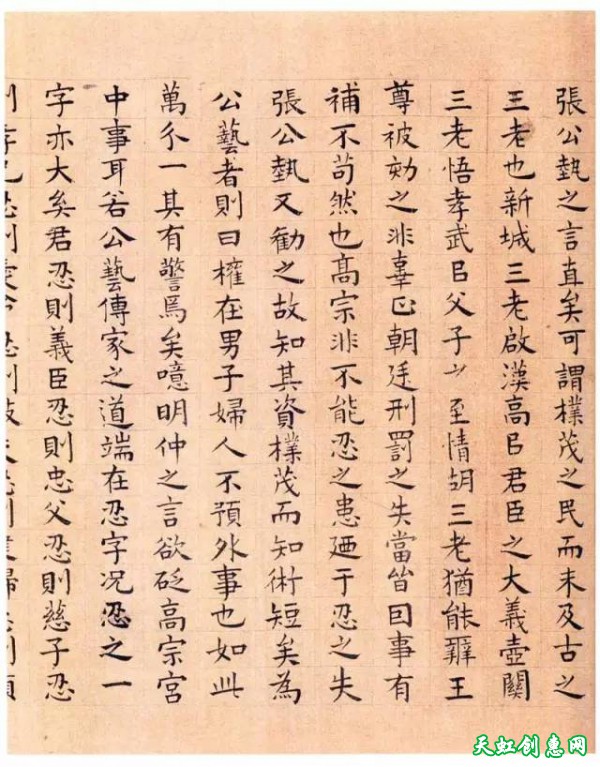 張公執之言直矣可謂樸茂之民而未及古之
三老也新城三老啟漢高㠯君臣之大義壺關
三老悟孝武㠯父子㞢至情胡三老猶能辭王
尊被劾之非辜正朝廷刑罰之失當皆因事有
補不苟然也高宗非不能忍之患廼于忍之失
張公執又勸之故知其資樸茂而知術短矣為
公藝者則曰權在男子婦人不預外事也如此
萬分一其有警焉矣噫明仲之言欲砭高宗宮
中事耳若公藝傳家之道端在忍字況忍之一
字亦大矣君忍則義臣忍則忠父忍則慈子忍
天虹创惠网